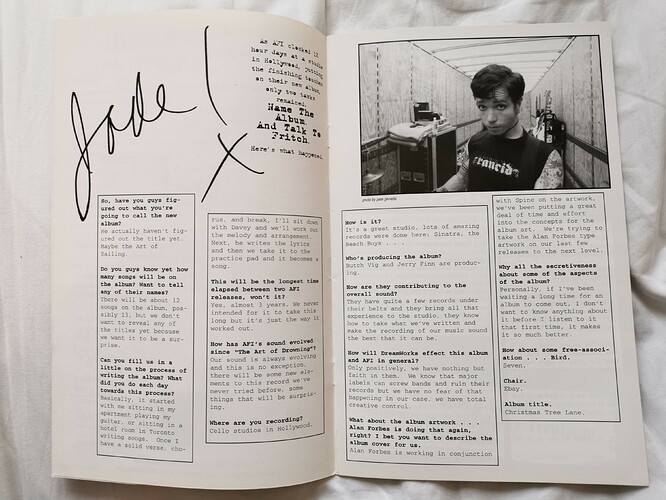 Jade!
X
As AFI clocked 12
hour days at a studio
in Hollywood, putting
the finishing touches
on their new album,
only two tasks
remained.
Name The
Album.
And Talk To
Fritch.
Here's what happened.
So, have you guys fig-
ured out what you're
going to call the new
album?
We actually haven't fig-
ured out the title yet.
Maybe the Art of
Sailing.
Do you guys know yet how
many songs will be on
the album? Want to tell
any of their names?
There will be about 12
songs on the album, pos-
sibly 13, but we don't
want to reveal any of
the titles yet because
we want it to be a sur-
prise.
Can you fill us in a
little on the process of
writing the album? What
did you do each day
towards this process?
Basically, it started
with me sitting in my
apartment playing my
guitar, or sitting in a
hotel room in Toronto
writing songs. Once I
have a solid verse, cho-
rus, and break, I'll sit down
with Davey and we'll work out
the melody and arrangement.
Next, he writes the lyrics
and then we take it to the
practice pad and it becomes a
song.
This will be the longest time
elapsed between two AFI
releases, won't it?
Yes, almost 3 years. We never
intended for it to take this
long but it's just the way it
worked out.
How has AFI's sound evolved
since "The Art of Drowning"?
Our sound is always evolving
and this is no exception.
there will be some new ele-
ments to this record we've
never tried before, some
things that will be surpris-
ing.
Where are you recording?
Cello studios in Hollywood.
rancid
photo by jake garcella
How is it?
It's a great studio, lots of amazing
records were done here: Sinatra, the
Beach Boys . . .
Who's producing the album?
Butch Vig and Jerry Finn are produc-
ing.
How are they contributing to the
overall sound?
They have quite a few records under
their belts and they bring all that
experience to the studio. they know
how to take what we've written and
make the recording of our music sound
the best that it can be.
How will DreamWorks effect this album
and AFI in general?
Only positively, we have nothing but
faith in them. We know that major
labels can screw bands and ruin their
records but we have no fear of that
happening in our case. we have total
creative control.
What about the album artwork . . .
Alan Forbes is doing that again,
right? I bet you want to describe the
album cover for us.
Alan Forbes is working in conjunction
with Spine on the artwork,
we've been putting a great
deal of time and effort
into the concepts for the
album art. We're trying to
take the Alan Forbes type
artwork on our last few
releases to the next level.
Why all the secretiveness
about some of the aspects
of the album?
Personally, if I've been
waiting a long time for an
album to come out, I don't
want to know anything about
it before I listen to it
that first time, it makes
it so much better.
How about some free-associ-
ation . . . Bird.
Seven.
Chair.
Ebay.
Album title.
Christmas Tree Lane.